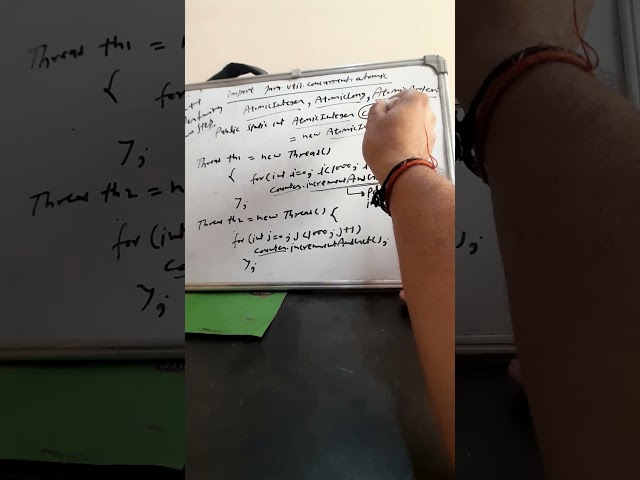 import Java.util.concurrent.atomic
AtomicInteger, AtomicLong, AtomicBoolean
step Public static int AtomicInteger
= new AtomicInt
Thread th1 = new Thread()
{ for(int i=0; i<1000; i++)
counter.incrementAndGet
};
Thread th2 = new Thread() {
for(int j=0; j<1000; j++)
counter.incrementAndGet();
};